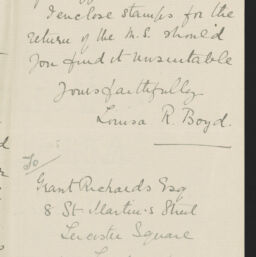 I enclose stamps for the
return of the M.S. should
you find it unsuitable
Yours faithfully
Louisa R. Boyd.
To/
Grant Richards Esq
8 St. Martin's Street
Leicester Square